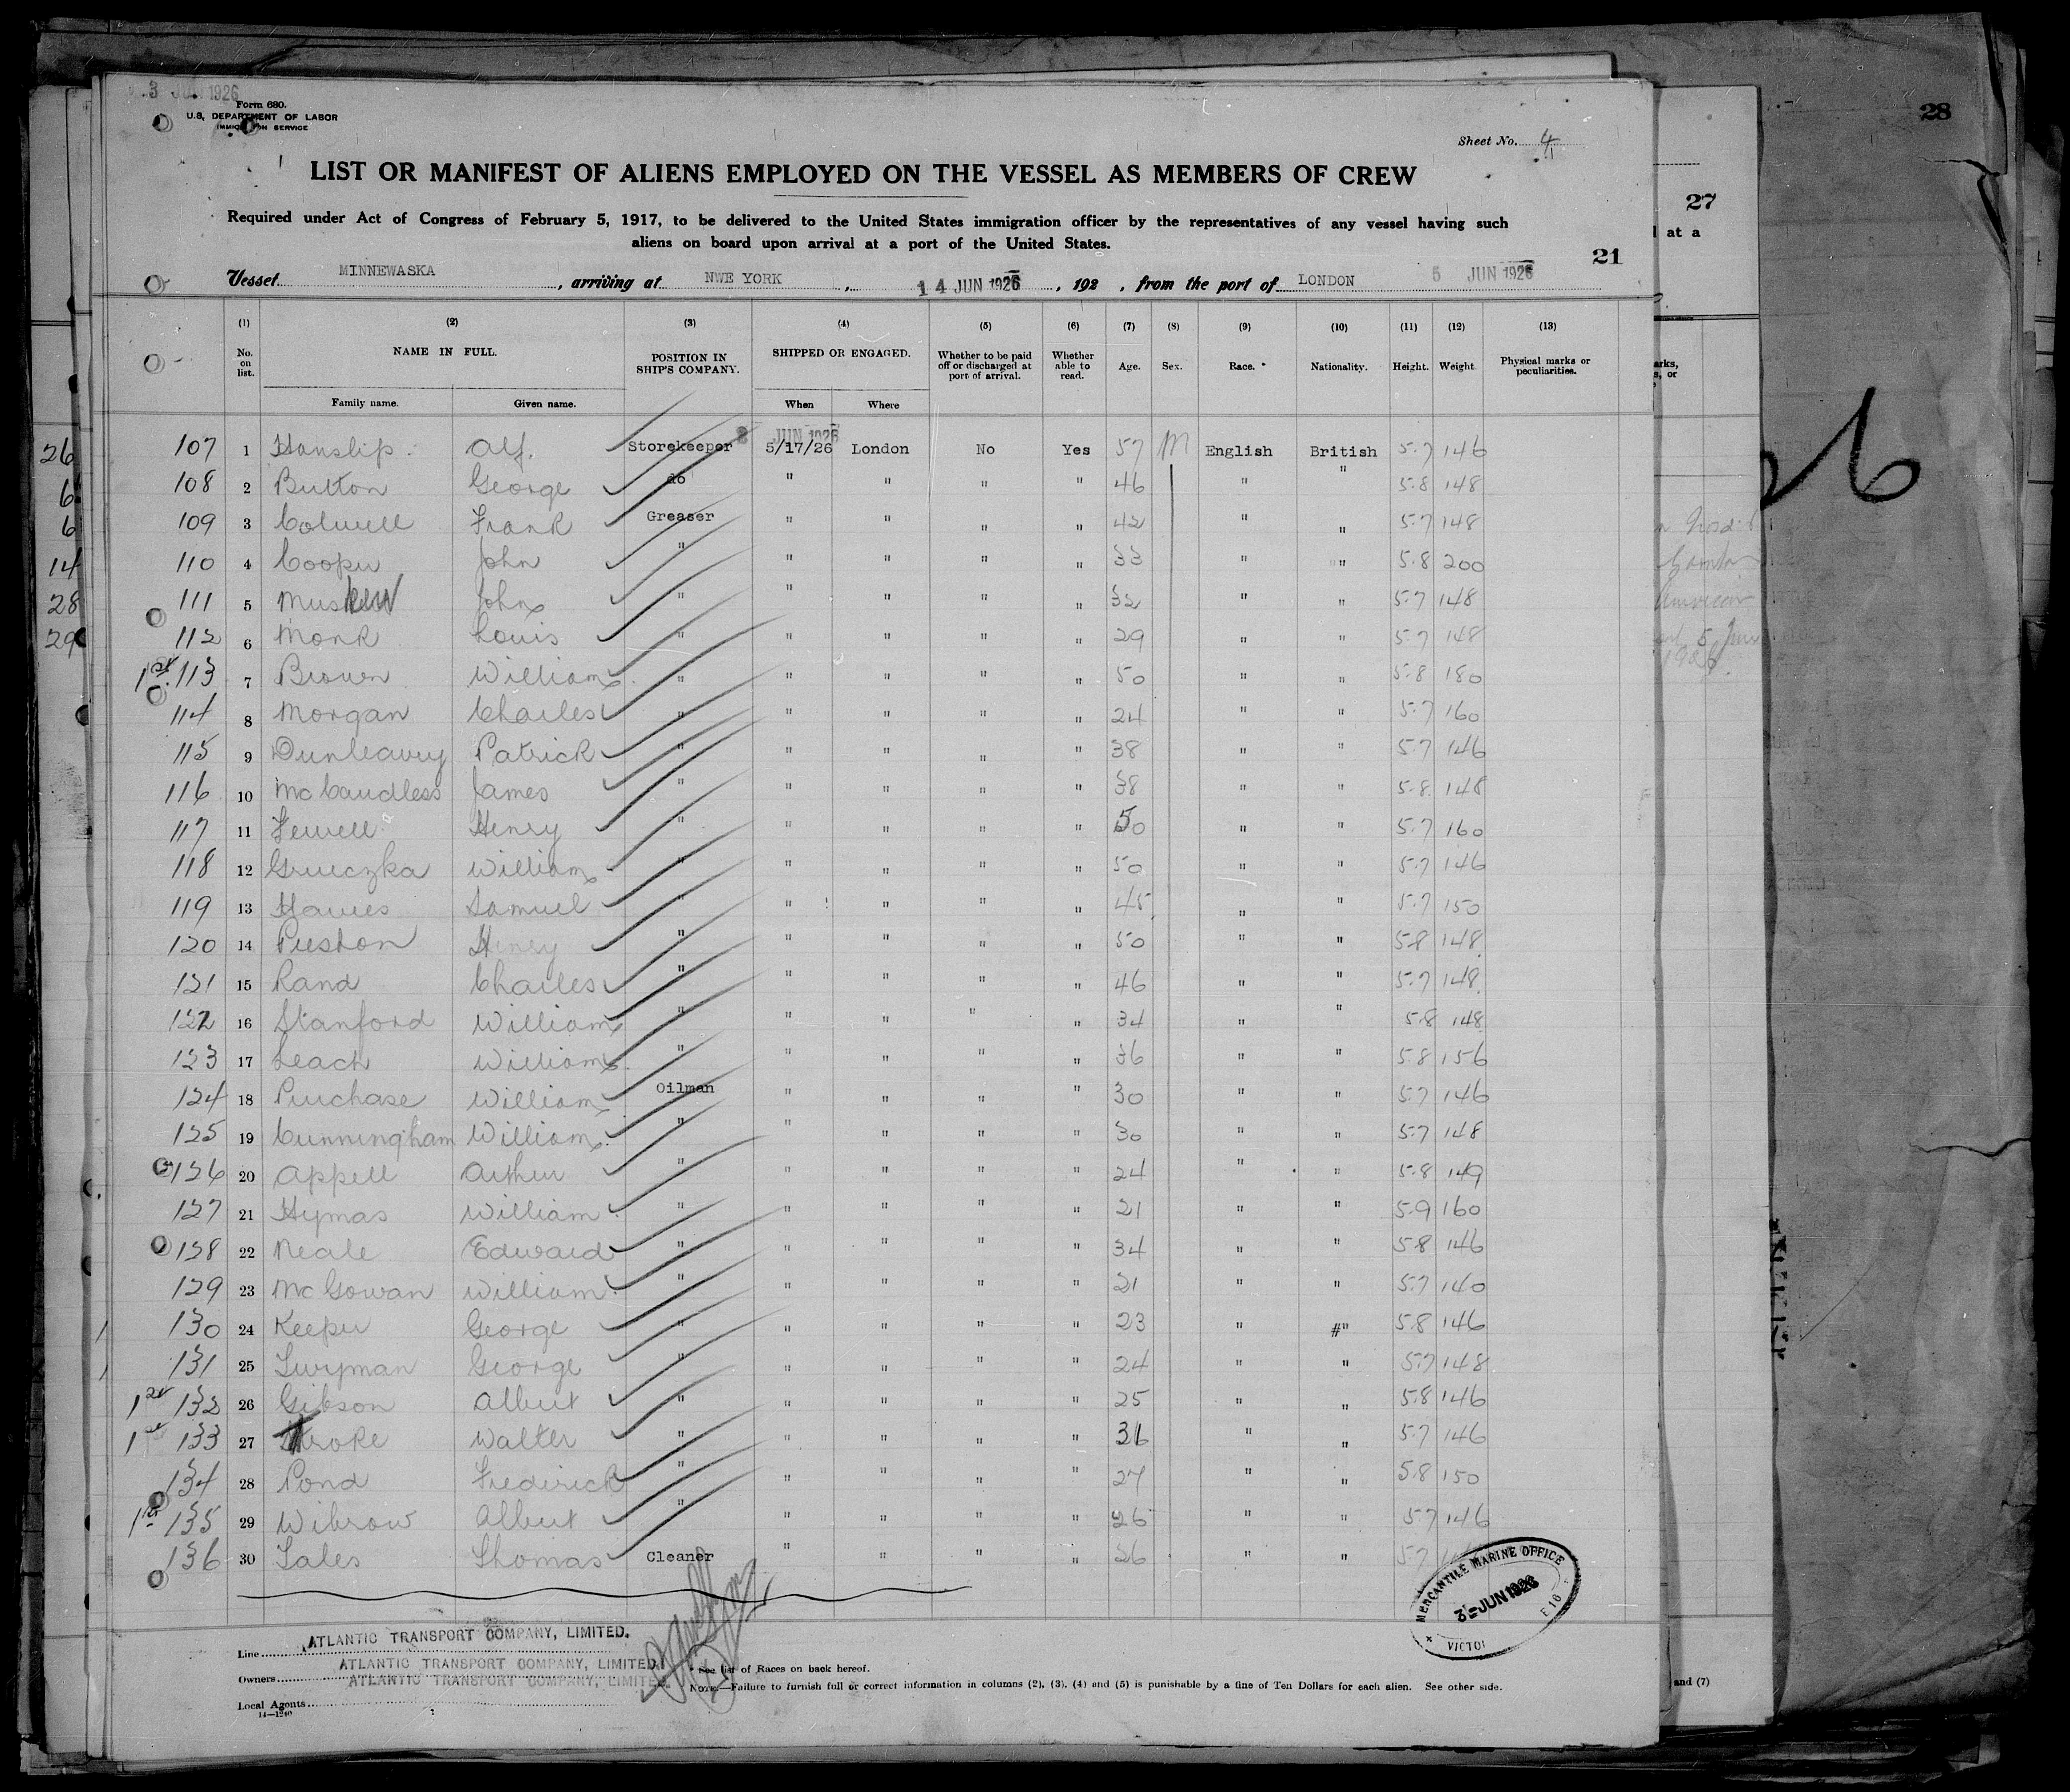 3 JUN 1926
Form 680.
U.S. DEPARTMENT OF LABOR
IMMIGRATION SERVICE
28
Sheet No. 4
LIST OR MANIFEST OF ALIENS EMPLOYED ON THE VESSEL AS MEMBERS OF CREW
27
Required under Act of Congress of February 5, 1917, to be delivered to the United States immigration officer by the representatives of any vessel having such
aliens on board upon arrival at a port of the United States.
at a
21
Vessel MINNEWASKA, arriving at NWE YORK, 14 JUN 1926, 192 , from the port of LONDON 5 JUN 1926
(1) (2) (3) (4) (5) (6) (7) (8) (9) (10) (11) (12) (13)
No. on list. NAME IN FULL. POSITION IN SHIP'S COMPANY. SHIPPED OR ENGAGED. Whether to be paid off or discharged at port of arrival. Whether able to read. Age. Sex. Race. * Nationality. Height. Weight. Physical marks or peculiarities.
Family name. Given name. When Where
JUN 1926
107 1 Hanslip Alf. Storekeeper 5/17/26 London No Yes 57 M English British 5.7 146
108 2 Button George do " " " " 46 " " 5.8 148
109 3 Colwell Frank Greaser " " " " 42 " " 5.7 148
110 4 Cooper John " " " " " 33 " " 5.8 200
111 5 John " " " " " 32 " " 5.7 148
112 6 Monk Louis " " " " " 29 " " 5.7 148
1st 113 7 Brown William " " " " " 50 " " 5.8 180
114 8 Morgan Charles " " " " " 24 " " 5.7 160
115 9 Dunleavey Patrick " " " " " 38 " " 5.7 146
116 10 McCaudless James " " " " " 38 " " 5.8 148
117 11 Fewell Henry " " " " " 50 " " 5.7 160
118 12 Grueczka William " " " " " 50 " " 5.7 146
119 13 Hawes Samuel " " " " " 45 " " 5.7 150
120 14 Preston Henry " " " " " 50 " " 5.8 148
121 15 Rand Charles " " " " " 46 " " 5.7 148
122 16 Stanford William " " " " " 34 " " 5.8 148
123 17 Leach William " " " " " 36 " " 5.8 156
124 18 Purchase William Oilman " " " " 30 " " 5.7 146
125 19 Cunningham William " " " " " 30 " " 5.7 148
126 20 Appell Arthur " " " " " 24 " " 5.8 149
127 21 Hymas William " " " " " 21 " " 5.9 160
128 22 Neale Edward " " " " " 34 " " 5.8 146
129 23 McGowan William " " " " " 21 " " 5.7 140
130 24 Keeper George " " " " " 23 " " 5.8 146
131 25 Twyman George " " " " " 24 " " 5.7 148
132 26 Gibson Albert " " " " " 25 " " 5.8 146
133 27 Walter " " " " " 31 " " 5.7 146
134 28 Pond Frederick " " " " " 27 " " 5.8 150
1st 135 29 Wibrow Albert " " " " " 26 " " 5.7 146
136 30 Thomas Cleaner " " " " " " 5.7
MERCANTILE MARINE OFFICE
3 JUN 1926
E 16
VICTO
Line ATLANTIC TRANSPORT COMPANY, LIMITED.
Owners ATLANTIC TRANSPORT COMPANY, LIMITED.
Local Agents ATLANTIC TRANSPORT COMPANY, LIMITED.
14—1240
* See list of Races on back hereof.
NOTE.—Failure to furnish full or correct information in columns (2), (3), (4) and (5) is punishable by a fine of Ten Dollars for each alien. See other side.
and (7)